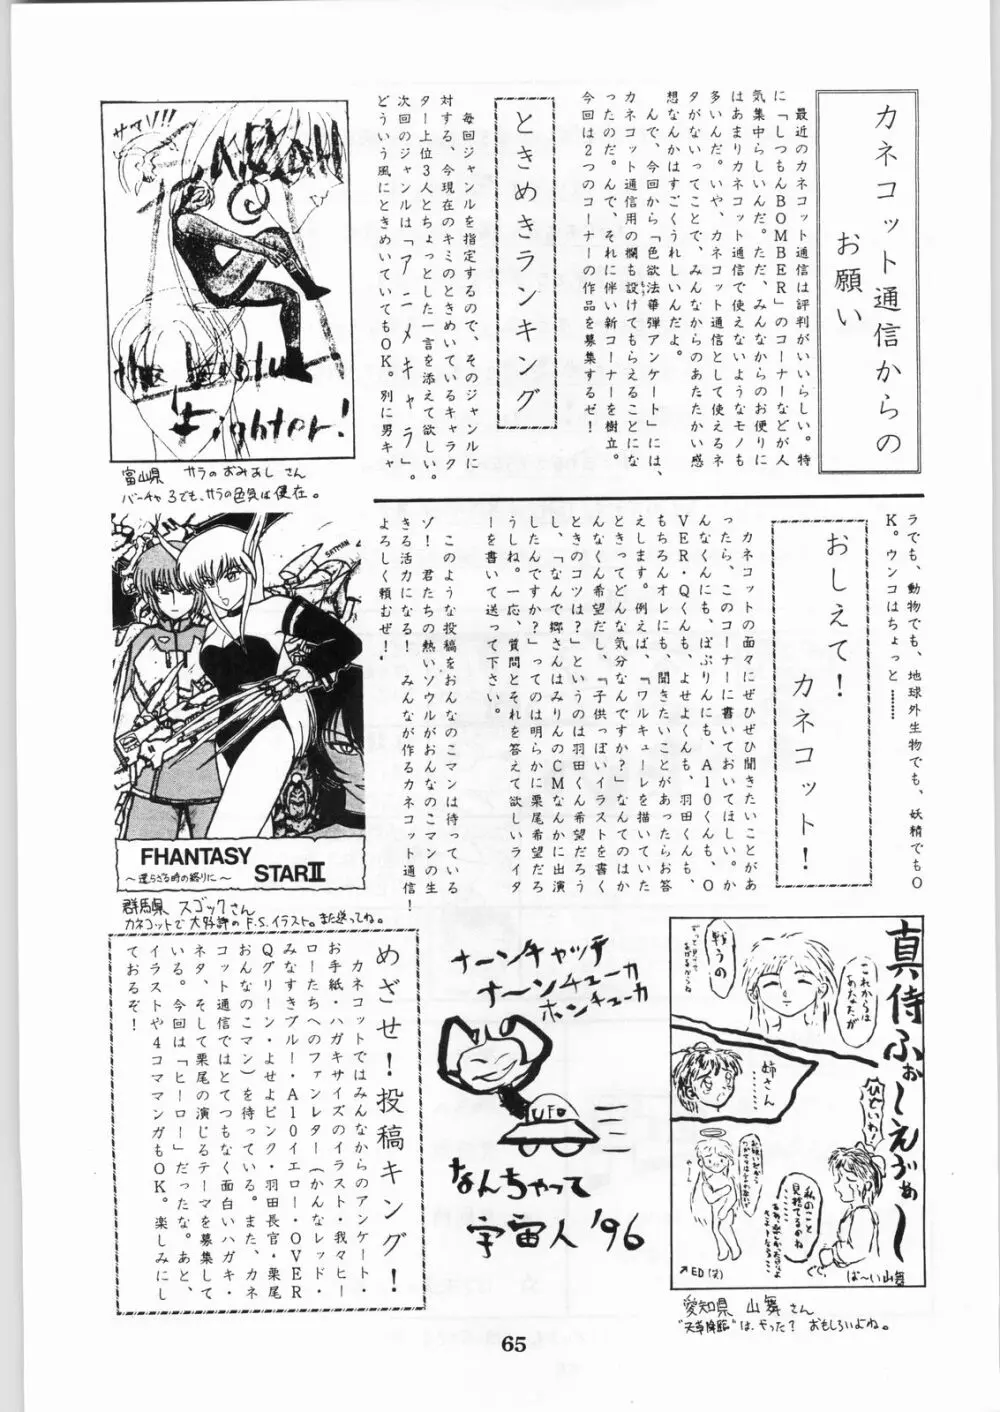 カネコット通信からの
お願い
最近のカネコット通信は評判がいいらしい。特
に「しつもんBOMBER」のコーナーなどが人
気集中らしいんだ。ただ、みんなからのお便りに
はあまりカネコット通信で使えないようなモノも
多いんだ。いや、カネコット通信として使えるネ
タがないってことで、みんなからのあたたかい感
想なんかはすごくうれしいんだよ。
んで、今回から「色欲法華弾アンケート」には、
カネコット通信用の欄も設けてもらえることにな
ったのだ。んで、それに伴い新コーナーを樹立。
今回は2つのコーナーの作品を募集するぜ!
ときめきランキング
毎回ジャンルを指定するので、そのジャンルに
対する、今現在のキミのときめいているキャラク
ター上位3人とちょっとした一言を添えて欲しい。
次回のジャンルは「アニメキャラ」。
どういう風にときめいていてもOK。別に男キャ
ラでも、動物でも、地球外生物でも、妖精でもO
K。ウンコはちょっと……
サマソ!!
Fighter!
富山県 サラのおみあし さん
バーチャ3でも、サラの色気は健在。
おしえて!
カネコット!
カネコットの面々にぜひぜひ聞きたいことがあ
ったら、このコーナーに書いておいてほしい。か
んなくんにも、ぽぷりんにも、A10くんも、O
VER・Qくんも、よせよくんも、羽田くんも、
もちろんオレにも、聞きたいことがあったらお答
えします。例えば、『ワルキューレを描いていた
ときってどんな気分なんですか?』なんてのはか
んなくん希望だし、『子供っぽいイラストを書く
ときのコツは?』というのは羽田くん希望だろう
し、『なんで郷さんはみりんのCMなんかに出演
したんですか?』ってのは明らかに栗尾希望だろ
うしね。一応、質問とそれを答えて欲しいライタ
ーを書いて送って下さい。
このような投稿をおんなのこマンは待っている
ゾ! 君たちの熱いソウルがおんなのこマンの生
きる活力になる! みんなが作るカネコット通信!
よろしく頼むぜ!
FHANTASY
STARII
〜還らざる時の終りに〜
群馬県 スゴックさん
カネコットで大好評のF.S.イラスト。また送ってね。
めざせ!投稿キング!
カネコットではみんなからのアンケート・
お手紙・ハガキサイズのイラスト・我々ヒー
ローたちへのファンレター(かんなレッド・
みなすきブルー・A10イエロー・OVER
Qグリーン・よせよピンク・羽田長官・栗尾
おんなのこマン)を待っている。また、カネ
コット通信ではとてつもなく面白いハガキ・
ネタ、そして栗尾の演じるテーマを募集して
いる。今回は「ヒーロー」だったな。あと、
イラストや4コママンガもOK。楽しみにし
ておるぞ!
ナーンキャッチ
ナーンチューカ
ホンチューカ
UFO
なんちゃって
宇宙人'96
真侍ふぉーえばぁー
これからは
あなたが
戦うの
姉さん
……
ひどいわ!
私のこと
見捨てるのね
ぐぐ
↗ED(笑)
ば〜い山舞
愛知県 山舞さん
"天草降臨"は、やった? おもしろいよね。
65